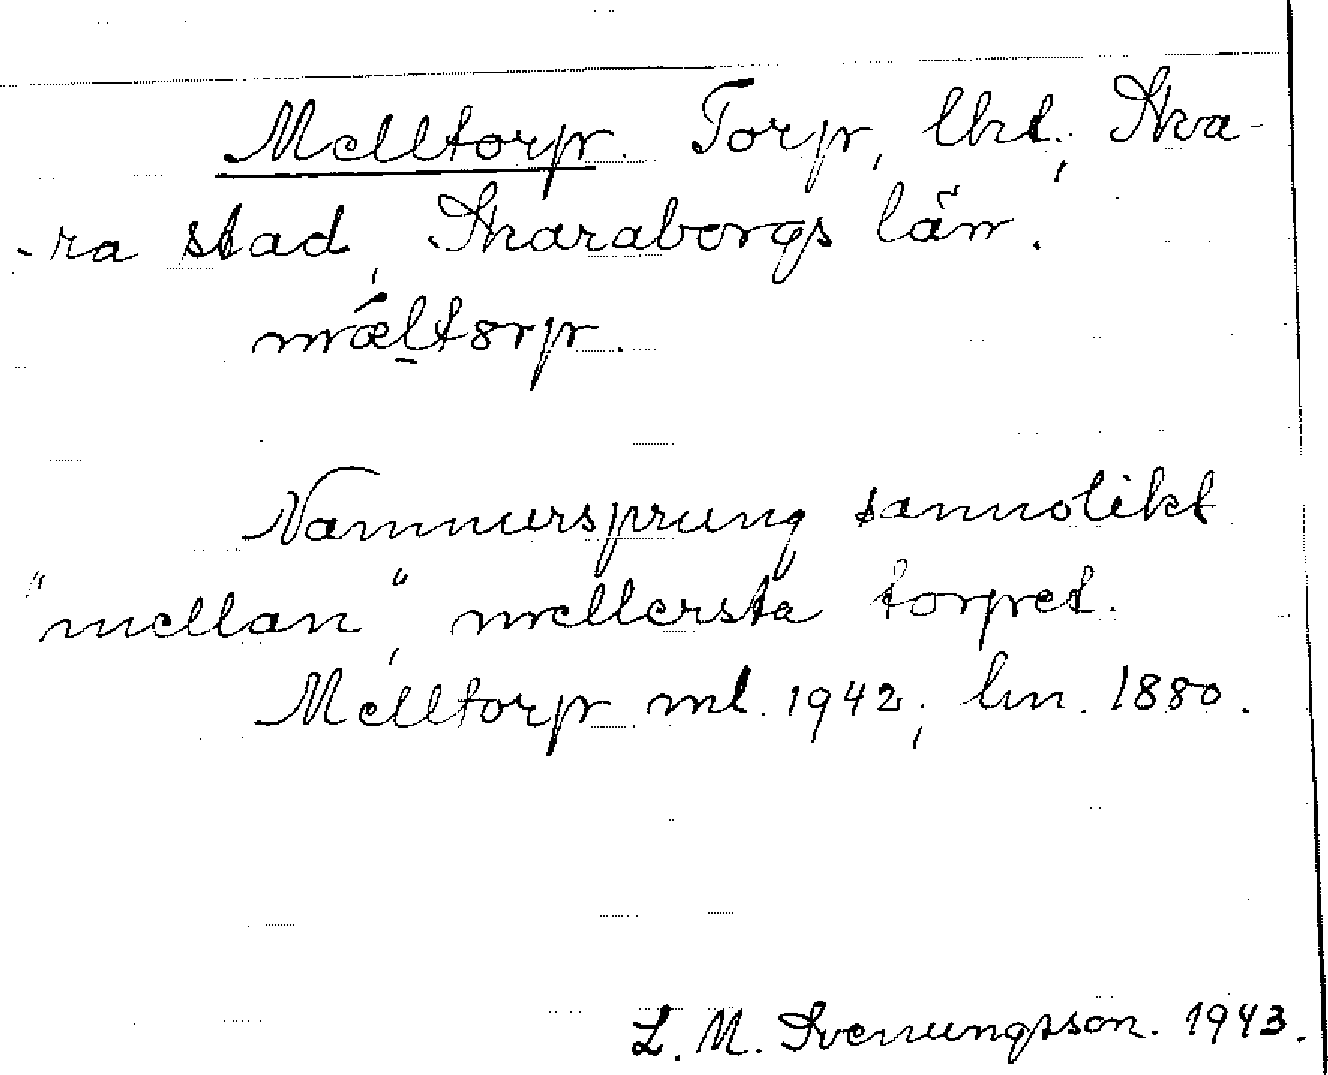 Melltorp. Torp, lht., Ska-
-ra stad, Skaraborgs län.
mǽltorp.
Namnursprung sannolikt
"mellan", mellersta torpet.
Melltorp ml. 1942, hm. 1880.
L. M. Svenungsson. 1943.